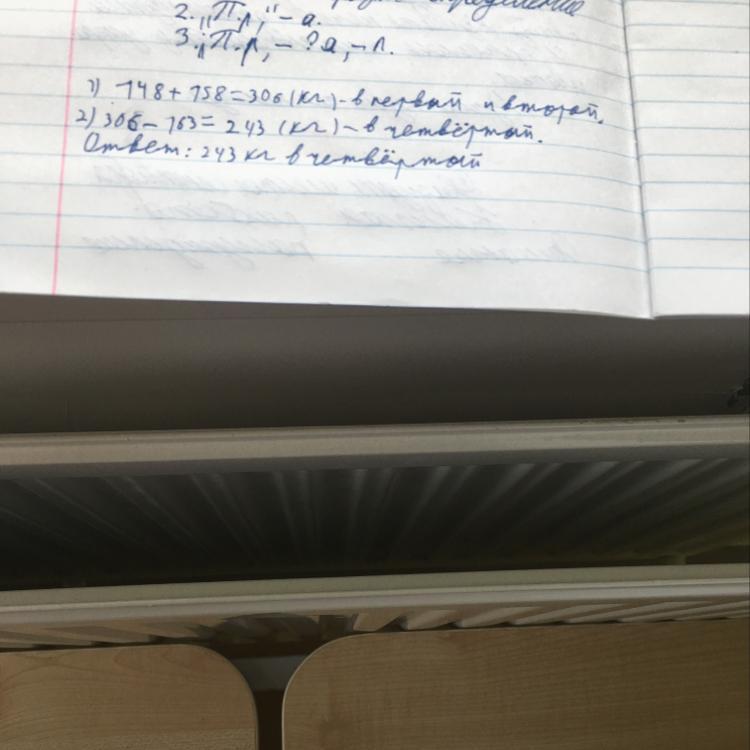 2. „П,“ – а.
3. „П.р, – ? а, – п.
1) 148 + 158 = 306 (кг) – в первый и второй.
2) 306 – 163 = 243 (кг) – в четвёртый.
Ответ: 243 кг в четвёртый